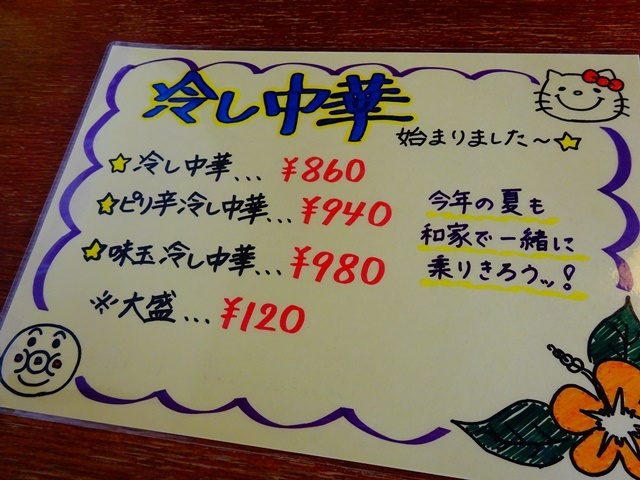 冷し中華
始まりました〜
冷し中華... ¥860
ピリ辛冷し中華... ¥940
味玉冷し中華... ¥980
※大盛... ¥120
今年の夏も
和家で一緒に
乗りきろうッ!